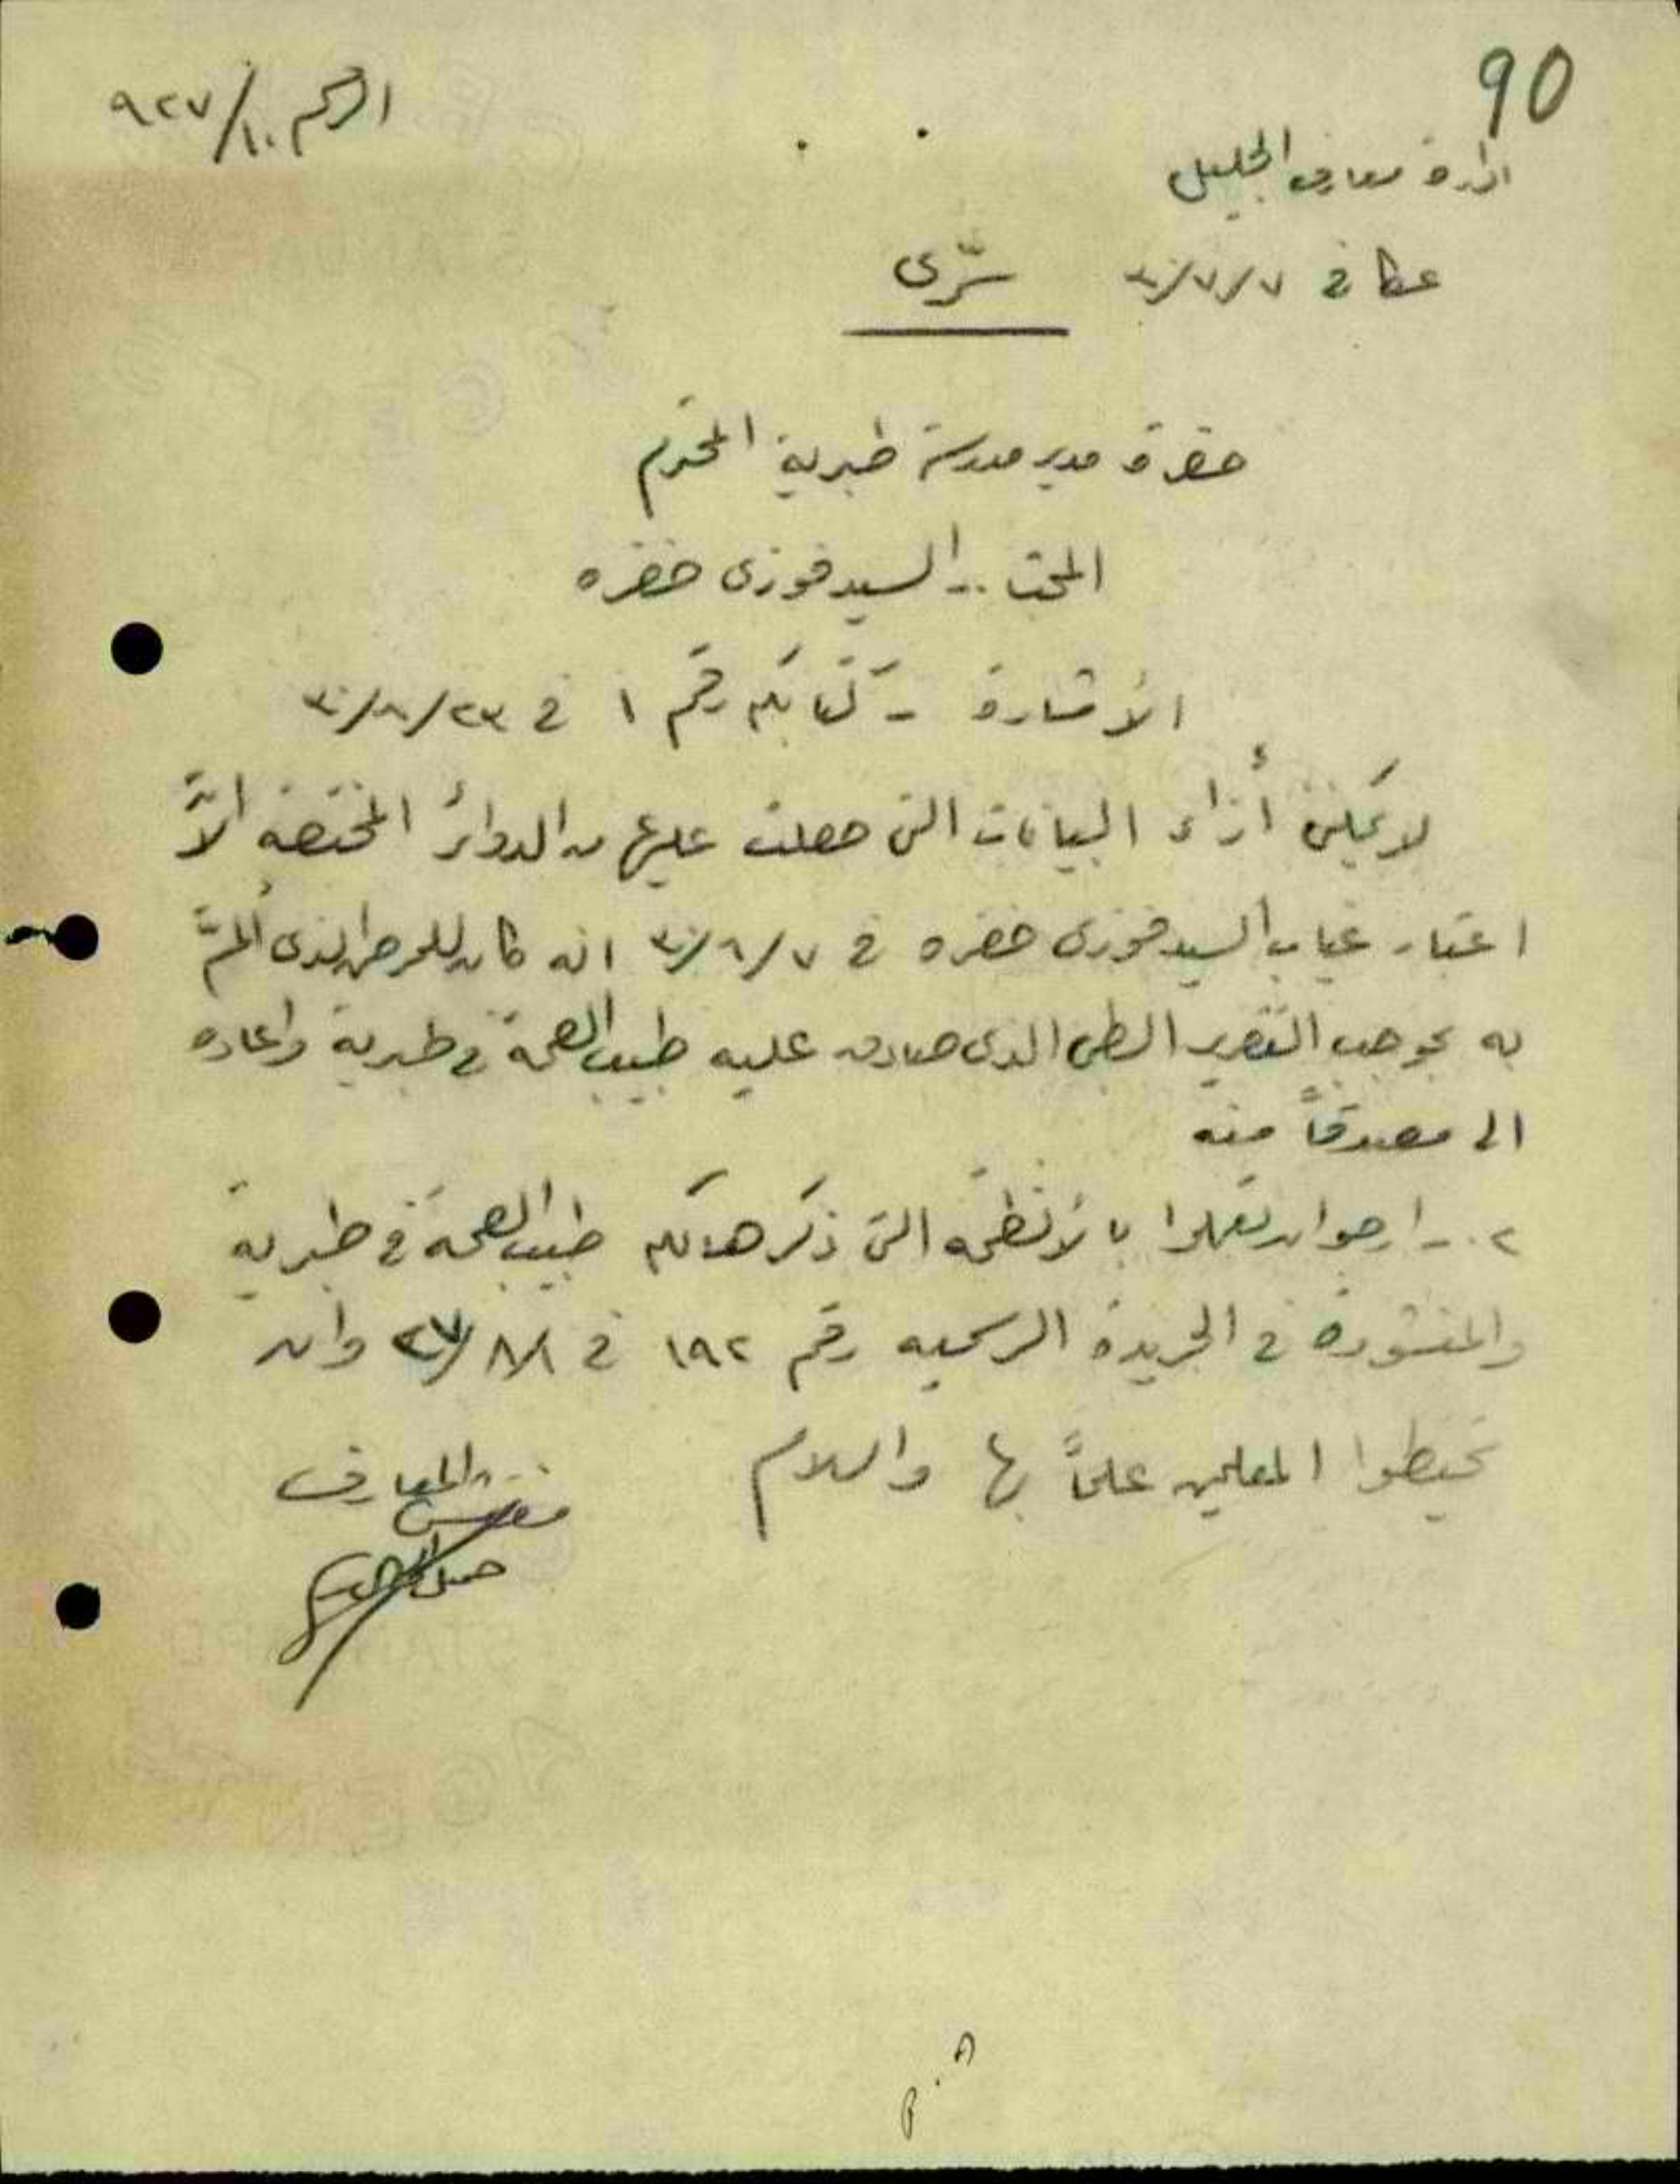 90
الرقم ١٠/٩٢٧
ادارة معارف الجليل
عكا في ٧/٧/٣٠ سرّى
حضرة مدير مدرسة طبرية المحترم
المبحث .. السيد فوزى خضره
الأشارة - كتابكم رقم ١ في ٢٣/٨/٣٠
لا يمكنني أزاء البيانات التى حصلت عليها من الدوائر المختصه الاّ
اعتبار غياب السيد فوزى خضره في ٧/٦/٣٠ انه كان للمرض الذى ألمّ
به بموجب التقرير الطبى الذى صادق عليه طبيب الصحة في طبرية واعاده
الى مصدقاً منه
٢ .- ارجو ان تعملوا بالأنظمه التى ذكرها لكم طبيب الصحة في طبرية
والمنشورة في الجريدة الرسميه رقم ١٩٢ في ١/٨/٢٧ وان
تحيطوا المعلمين علماً بها والسلام
مفتش المعارف